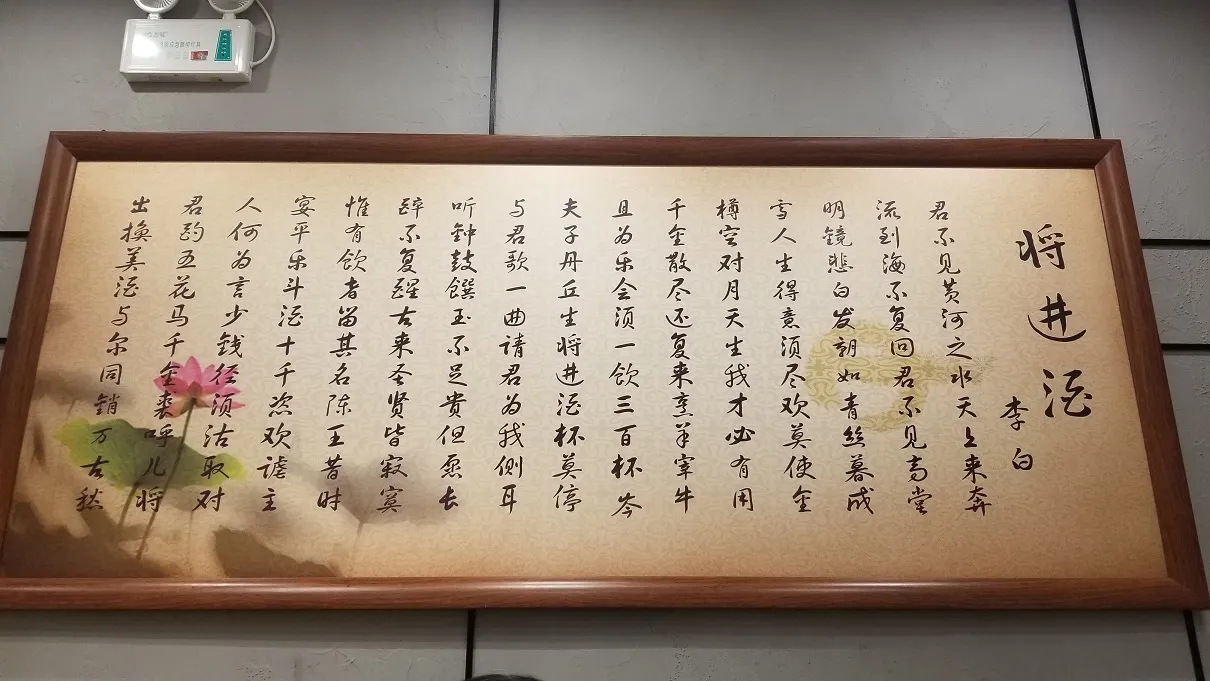 将进酒
李白
君不见黄河之水天上来奔
流到海不复回君不见高堂
明镜悲白发朝如青丝暮成
雪人生得意须尽欢莫使金
樽空对月天生我才必有用
千金散尽还复来烹羊宰牛
且为乐会须一饮三百杯岑
夫子丹丘生将进酒杯莫停
与君歌一曲请君为我侧耳
听钟鼓馔玉不足贵但愿长
醉不复醒古来圣贤皆寂寞
惟有饮者留其名陈王昔时
宴平乐斗酒十千恣欢谑主
人何为言少钱径须沽取对
君酌五花马千金裘呼儿将
出换美酒与尔同销万古愁